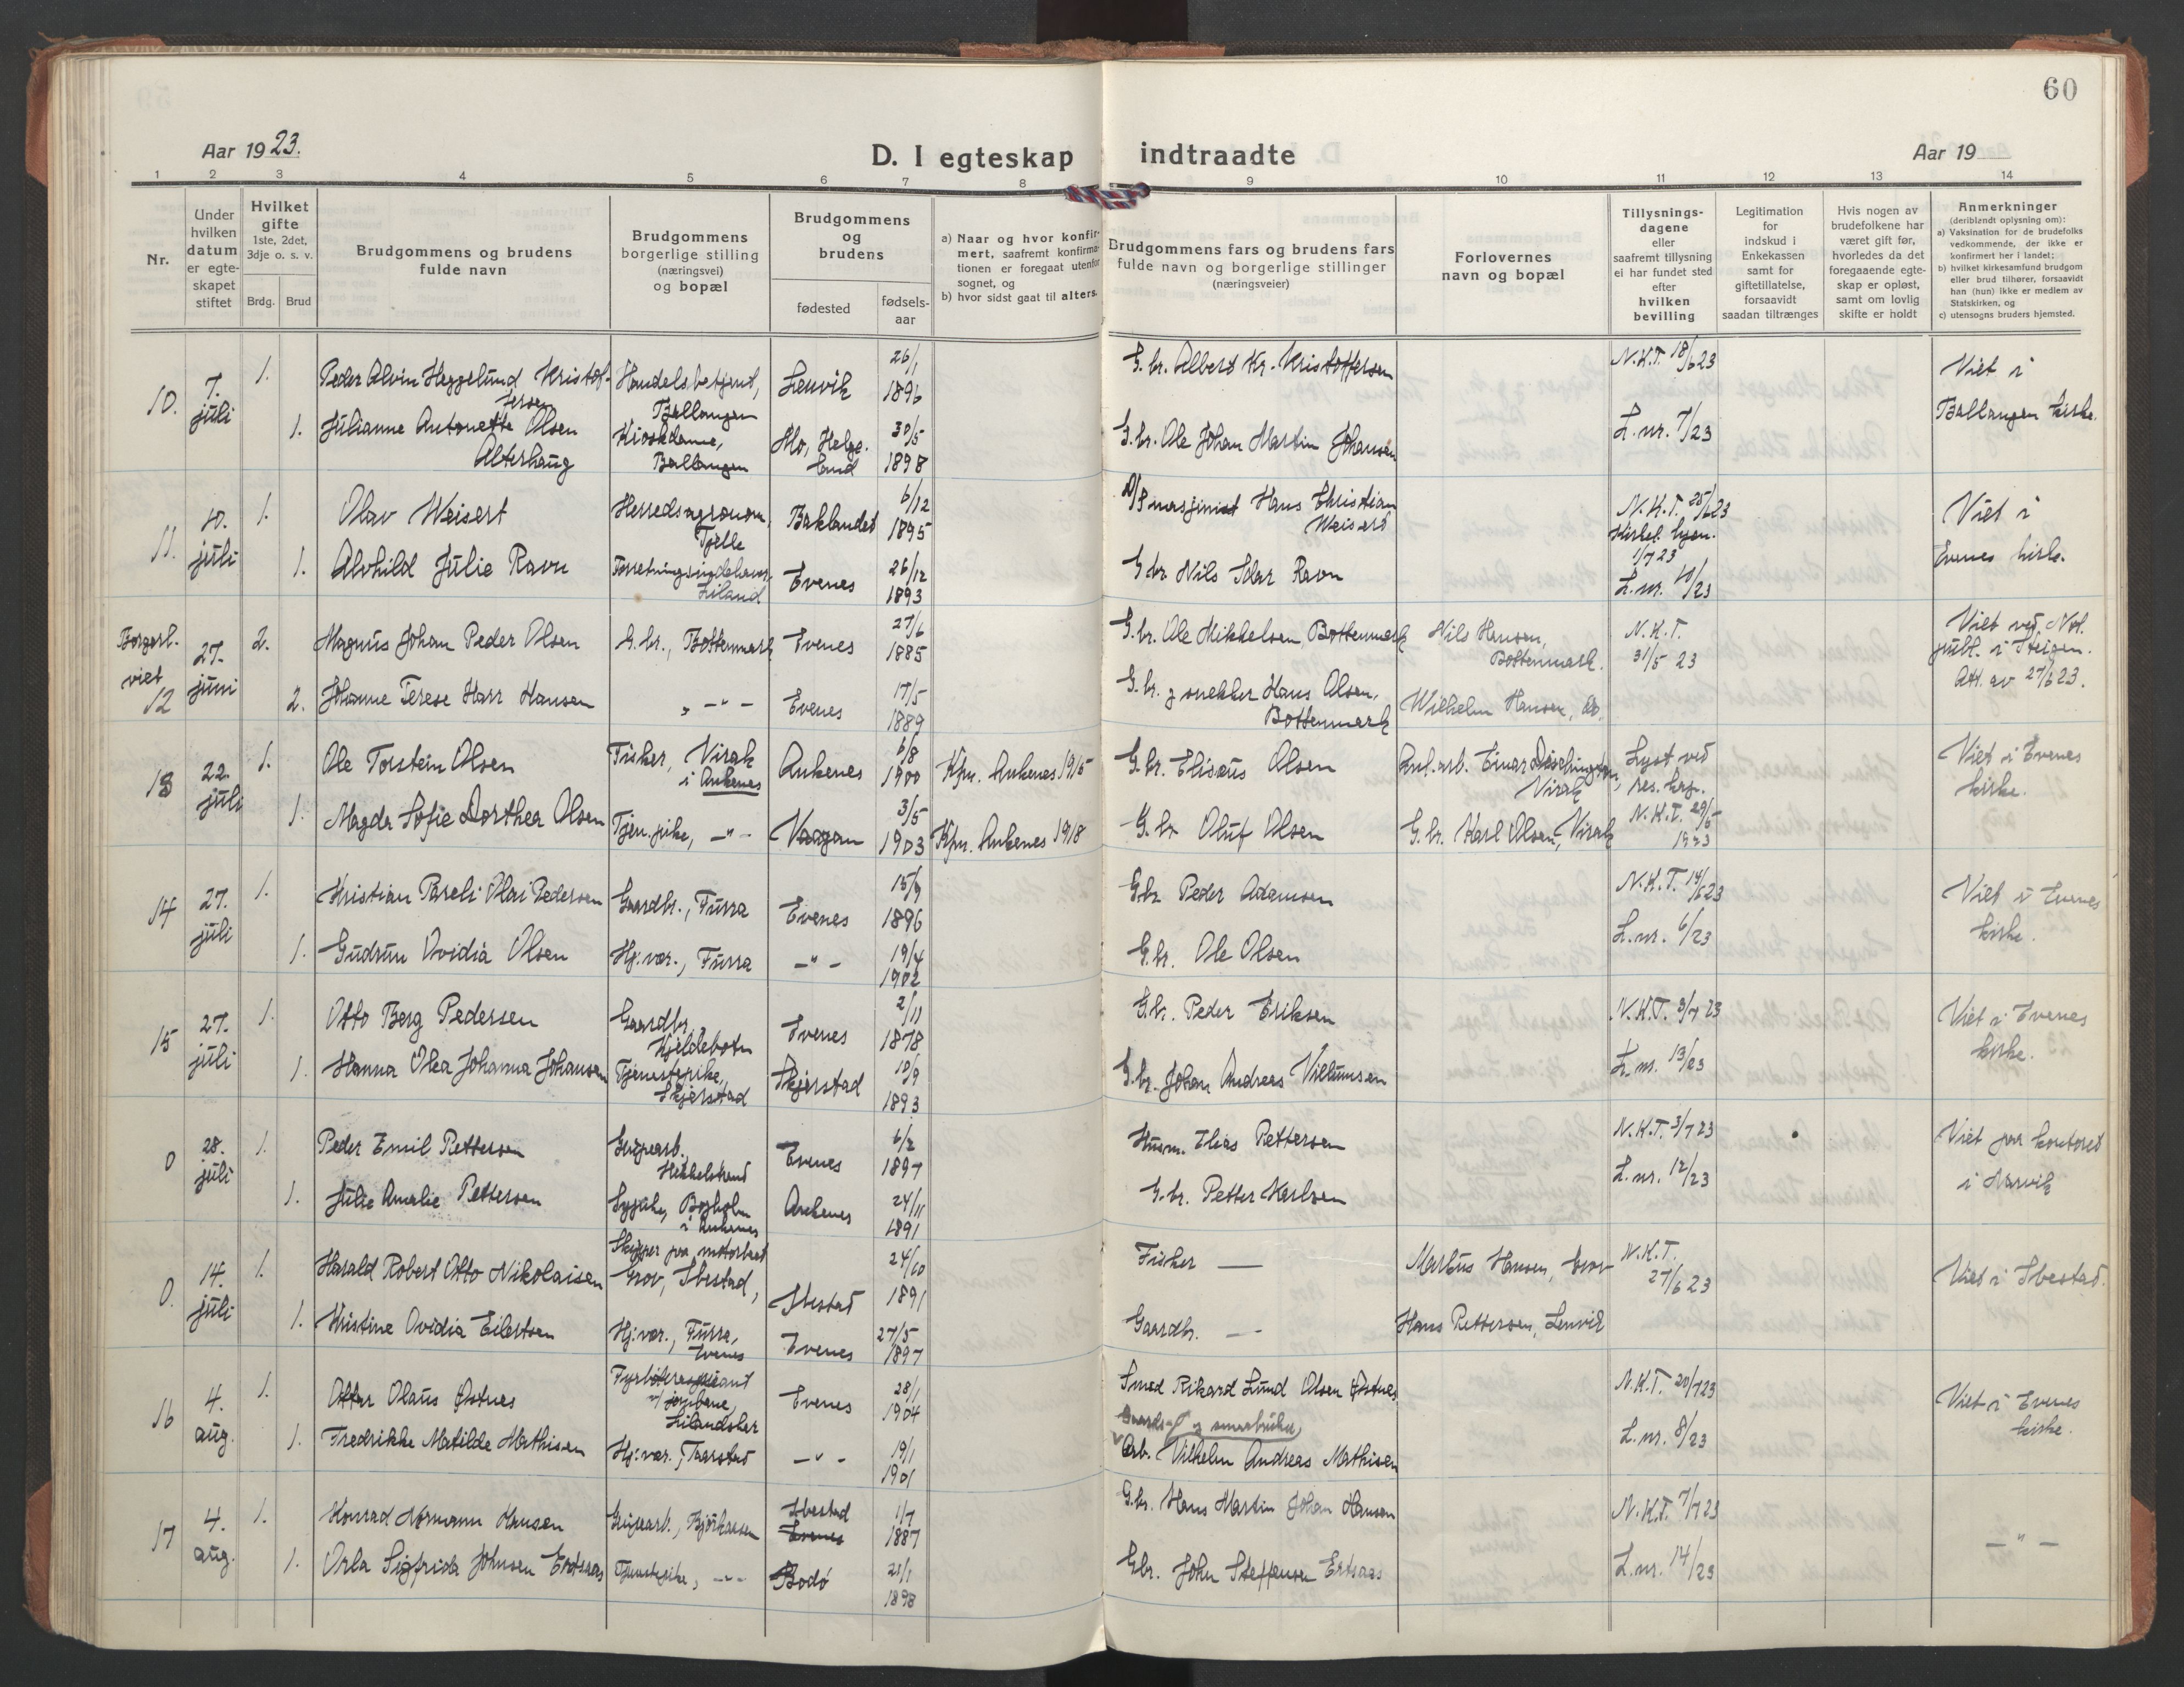 60
Aar 1923.
D. I egteskap indtraadte
Aar 19
1 2 3 4 5 6 7 8 9 10 11 12 13 14
Nr.
Under
hvilken
datum
er egte-
skapet
stiftet
Hvilket
gifte
1ste, 2det,
3dje o. s. v.
Brdg. Brud
Brudgommens og brudens
fulde navn
Brudgommens
borgerlige stilling
(næringsvei)
og bopæl
Brudgommens
og
brudens
fødested
fødsels-
aar
a) Naar og hvor konfir-
mert, saafremt konfirma-
tionen er foregaat utenfor
sognet, og
b) hvor sidst gaat til alters.
Brudgommens fars og brudens fars
fulde navn og borgerlige stillinger
(næringsveier)
Forlovernes
navn og bopæl
Tillysnings-
dagene
eller
saafremt tillysning
ei har fundet sted
efter
hvilken
bevilling
Legitimation
for
indskud i
Enkekassen
samt for
giftetillatelse,
forsaavidt
saadan tiltrænges
Hvis nogen av
brudefolkene har
været gift før,
hvorledes da det
foregaaende egte-
skap er opløst,
samt om lovlig
skifte er holdt
Anmerkninger
(deriblandt oplysning om):
a) Vaksination for de brudefolks
vedkommende, der ikke er
konfirmert her i landet;
b) hvilket kirkesamfund brudgom
eller brud tilhører, forsaavidt
han (hun) ikke er medlem av
Statskirken, og
c) utensogns bruders hjemsted.
10. 7. juli 1. Peder Alvin Heggelund Kristof-
fersen
Handelsbetjent,
Ballangen
Lenvik 26/1 1896
G.br. Albert Kr. Kristoffersen
N.K.T. 18/6 23
Viet i
Ballangen kirke.
1. Julianne Antonette Olsen
Alterhaug
Kioskdame,
Ballangen
Mo, Helge-
land 30/5 1898
G.br. Ole Johan Martin Johansen
L.nr. 7/23
11. 10. juli 1. Olav Weisert
Herredsagronom,
Tjelle
Baklandet 6/12 1895
D/S masjinist Hans Christian
Weisert
N.K.T. 25/6 23
1/7 23
Viet i
Evenes kirke.
1. Alvhild Julie Ravn
Forretningsindehaver,
Liland
Evenes 26/12 1893
G.br. Nils Idar Ravn
L.nr. 10/23
Borgerl.
viet
12 27. juni 2. Magnus Johan Peder Olsen
G.br., Bottenmark
Evenes 27/6 1885
G.br. Ole Mikkelsen, Bottenmark
Nils Hansen,
Bottenmark.
N.K.T.
31/5 23
Viet ved Not.
publ. i Steigen.
Att. av 27/6 23.
2. Johanne Terese Harr Hansen
" - " -
Evenes 17/5 1889
G.br. g snekker Hans Olsen,
Bottenmark
Wilhelm Hansen, do.
13 22. juli 1. Ole Torstein Olsen
Fisker, Virak
i Ankenes
Ankenes 6/8 1900
Kfm. Ankenes 1915
G.br. Elisæus Olsen
Virak
Lyst ved
res. kap.
Viet i Evenes
kirke.
1. Magda Sofie Dorthea Olsen
Tjen.pike, - " -
Vaagan 3/5 1903
Kfm. Ankenes 1918
G.br. Oluf Olsen
G.br. Karl Olsen, Virak
N.K.T. 29/5
1923
14 27. juli 1. Kristian Pareli Olai Pedersen
Gaardbr., Furra
Evenes 15/9 1896
G.br. Peder Adamsen
N.K.T. 14/6 23
Viet i Evenes
kirke.
1. Gudrun Ovidia Olsen
Hj.vær., Furra
- " - 19/4 1902
G.br. Ole Olsen
L.nr. 6/23
15 27. juli 1. Otto Berg Pedersen
Gaardbr.,
Kjeldebotn
Evenes 2/11 1878
G.br. Peder Eriksen
N.K.T. 3/7 23
Viet i Evenes
kirke.
1. Hanna Olea Johanna Johansen
Tjenestepike,
Skjerstad
Skjerstad 10/9 1893
G.br. Johan Andreas Villumsen
L.nr. 13/23
0 28. juli 1. Peder Emil Pettersen
Grubearb.,
Hekkelstrand
Evenes 6/2 1897
Husm. Elias Pettersen
N.K.T. 3/7 23
Viet paa kontoret
i Narvik
1. Julie Amalie Pettersen
i Ankenes
Ankenes 24/11 1891
G.br. Petter Karlsen
L.nr. 12/23
0. 14. juli 1. Harald Robert Otto Nikolaisen
Skipper paa motorbaat
Grov, Ibestad,
Ibestad 24/10 1891
Fisker —
Markus Hansen, Grov
N.K.T.
27/6 23
Viet i Ibestad.
1. Kristine Ovidia Eilertsen
Hj.vær., Furra,
Evenes
Evenes 27/5 1897
Gaardbr. —
Hans Pettersen, Lenvik
16 4. aug. 1. Ottar Olaus Østnes
Fyrbøteraspirant
v/ jernbane,
Lilandsher
Evenes 28/1 1904
Smed Rikard Lund Olsen Østnes
N.K.T. 20/7 23
Viet i Evenes
kirke.
1. Fredrikke Matilde Mathisen
Hj.vær., Taarstad
- " - 19/1 1901
Arb. Vilhelm Andreas Mathisen
L.nr. 8/23
17 4. aug. 1. Konrad Normann Hansen
Grubearb., Bjørkaasen
Ibestad
Evenes 1/7 1887
G.br. Hans Martin Johan Hansen
N.K.T. 7/7 23
- " -
1. Orla Sigfrida Johnsen Ertsaas
Tjenestepike, - " -
Bodø 21/1 1898
Gbr. John Steffensen Ertsaas
L.nr. 14/23